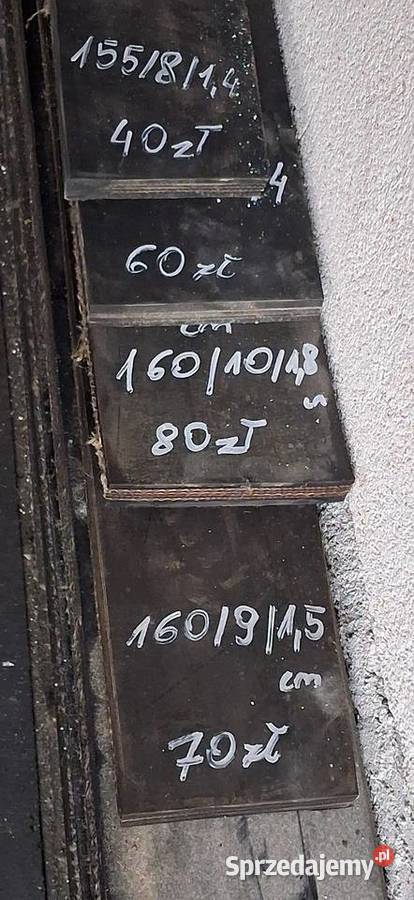 155/8/1,4
40 zł
4
60 zł
cm
160/10/1,8
80 zł
160/9/1,5
cm
70 zł
Sprzedajemy.pl